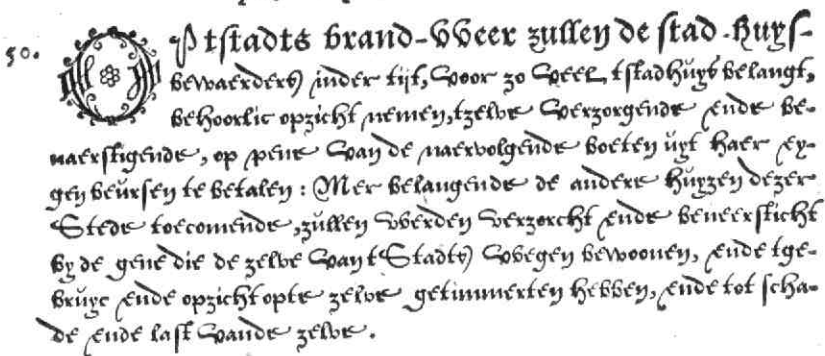 50. OPtstadts brand-VVeer zullen de stad-huys-
bewaerders inder tijt, voor zo veel, tstadhuys belangt,
behoorlic opzicht nemen, tzelve verzorgende ende be-
naerstigende, op pene van de naervolgende boeten uyt haer ey-
gen beursen te betalen: Mer belangende de andere huyzen dezer
Stede toecomende, zullen vverden verzorcht ende beneersticht
by de gene die de zelve van t Stadts vvegen bewoonen, ende tge-
bruyc ende opzicht opte zelve getimmerten hebben, ende tot scha-
de ende last vande zelve.